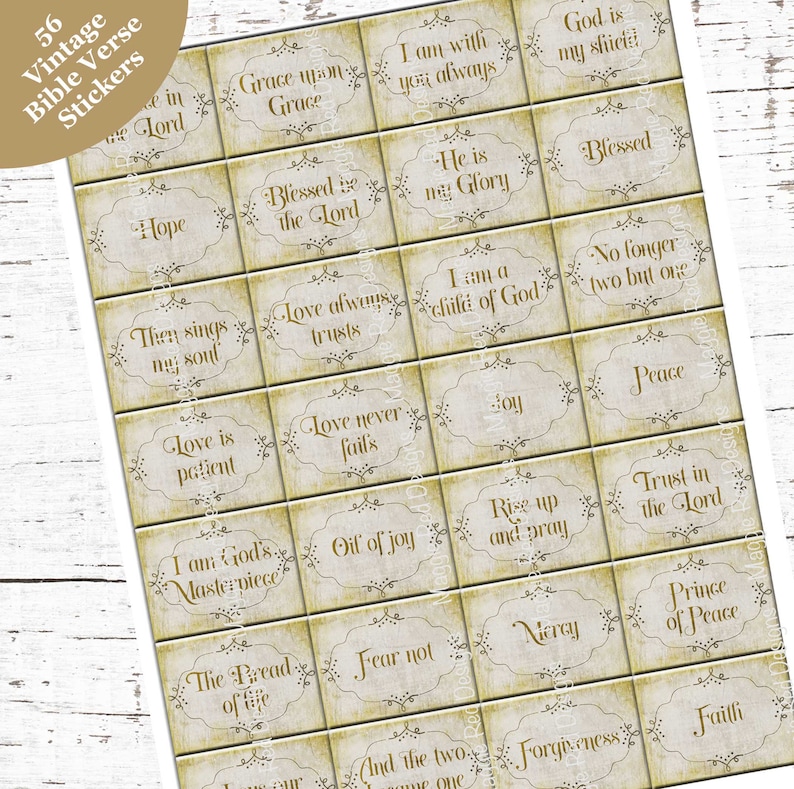 56
Vintage
Bible Verse
Stickers
in
the Lord
Grace upon
Grace
I am with
you always
God is
my shield
Hope
Blessed be
the Lord
He is
my Glory
Blessed
Then sings
my soul
Love always
trusts
I am a
child of God
No longer
two but one
Love is
patient
Love never
fails
Joy
Peace
I am God's
Masterpiece
Oil of joy
Rise up
and pray
Trust in
the Lord
The Bread
of life
Fear not
Mercy
Prince
of Peace
our
And the two
became one
Forgiveness
Faith
Maggie Red Designs